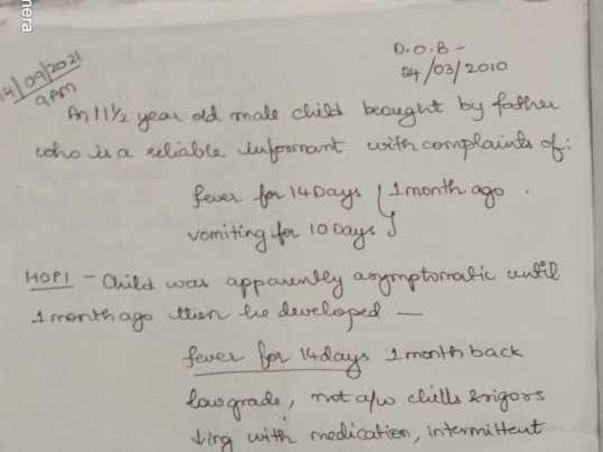 nera
14/09/2021
9AM
D.O.B -
24/03/2010
An 11 1/2 year old male child brought by father
who is a reliable informant with complaints of:
fever for 14 Days } 1 month ago.
vomiting for 10 Days
HOPI - Child was apparently asymptomatic until
1 month ago then he developed —
fever for 14 days 1 month back
low grade, not a/w chills & rigors
↓ing with medication, intermittent